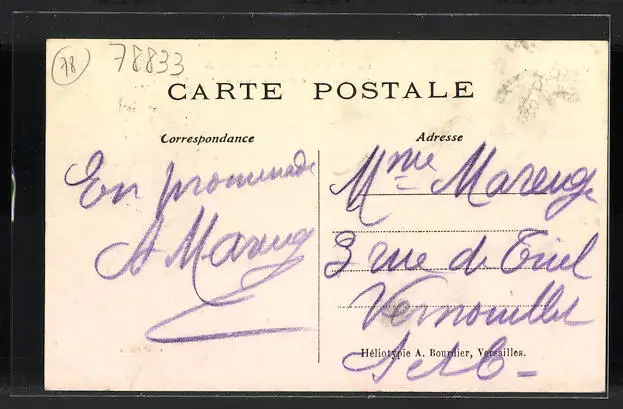 78
78833
CARTE POSTALE
Correspondance
Adresse
En promenade
A Mareng
Mme Mareng
3 rue de Triel
Vernouillet
Héliotypie A. Bourdier, Versailles.
S et O